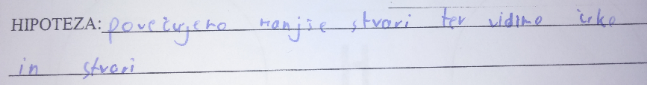 HIPOTEZA: povečujemo manjše stvari ter vidimo črke
in stvari